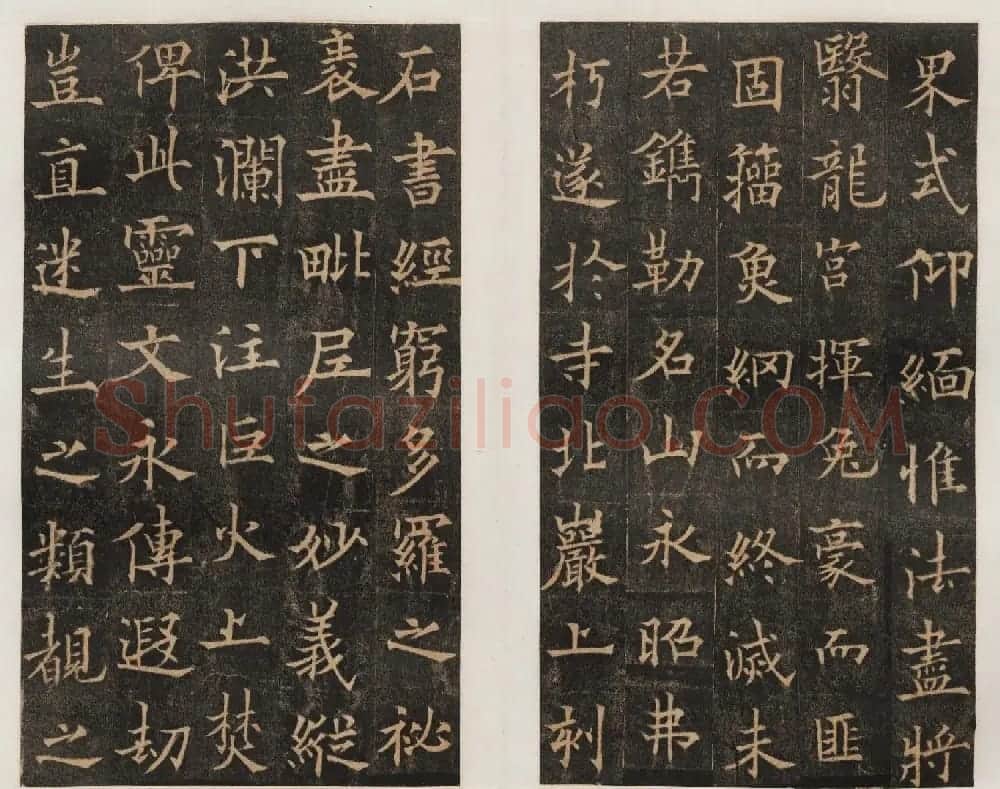 界式仰緬惟法盡將
翳龍宮揮兔豪而匪
固籀魚網而終滅未
若鐫勒名山永昭弗
朽遂於寺北巖上刻
石書經窮多羅之祕
袠盡毗尼之妙義縱
洪瀾下注巨火上焚
俾此靈文永傳遐劫
豈直迷生之類覩之
Shufaziliao.COM